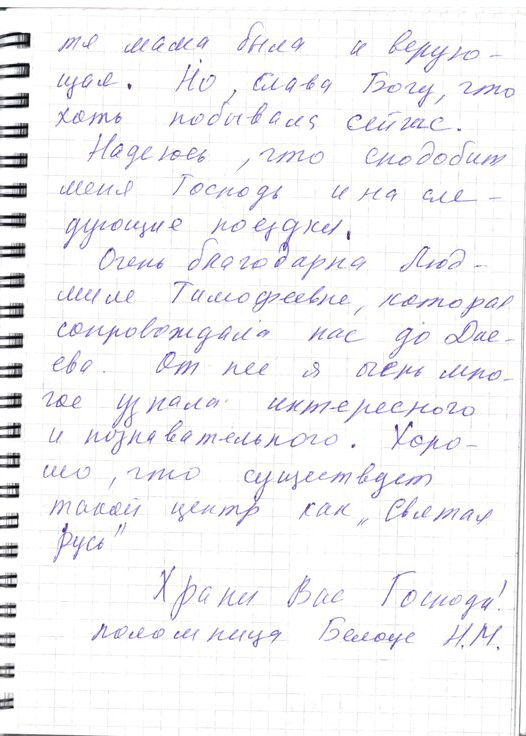 тя мама была и верую-
щая. Но, слава Богу, что
хоть побывала сейчас.
Надеюсь, что сподобит
меня Господь и на сле-
дующие поездки.
Очень благодарна Люд-
миле Тимофеевне, которая
сопровождала нас до Дивe-
ева. От нее я очень мно-
гое узнала интересного
и познавательного. Хоро-
шо, что существует
такой центр как „Святая
Русь"
Храни Вас Господь!
паломница Н.М.